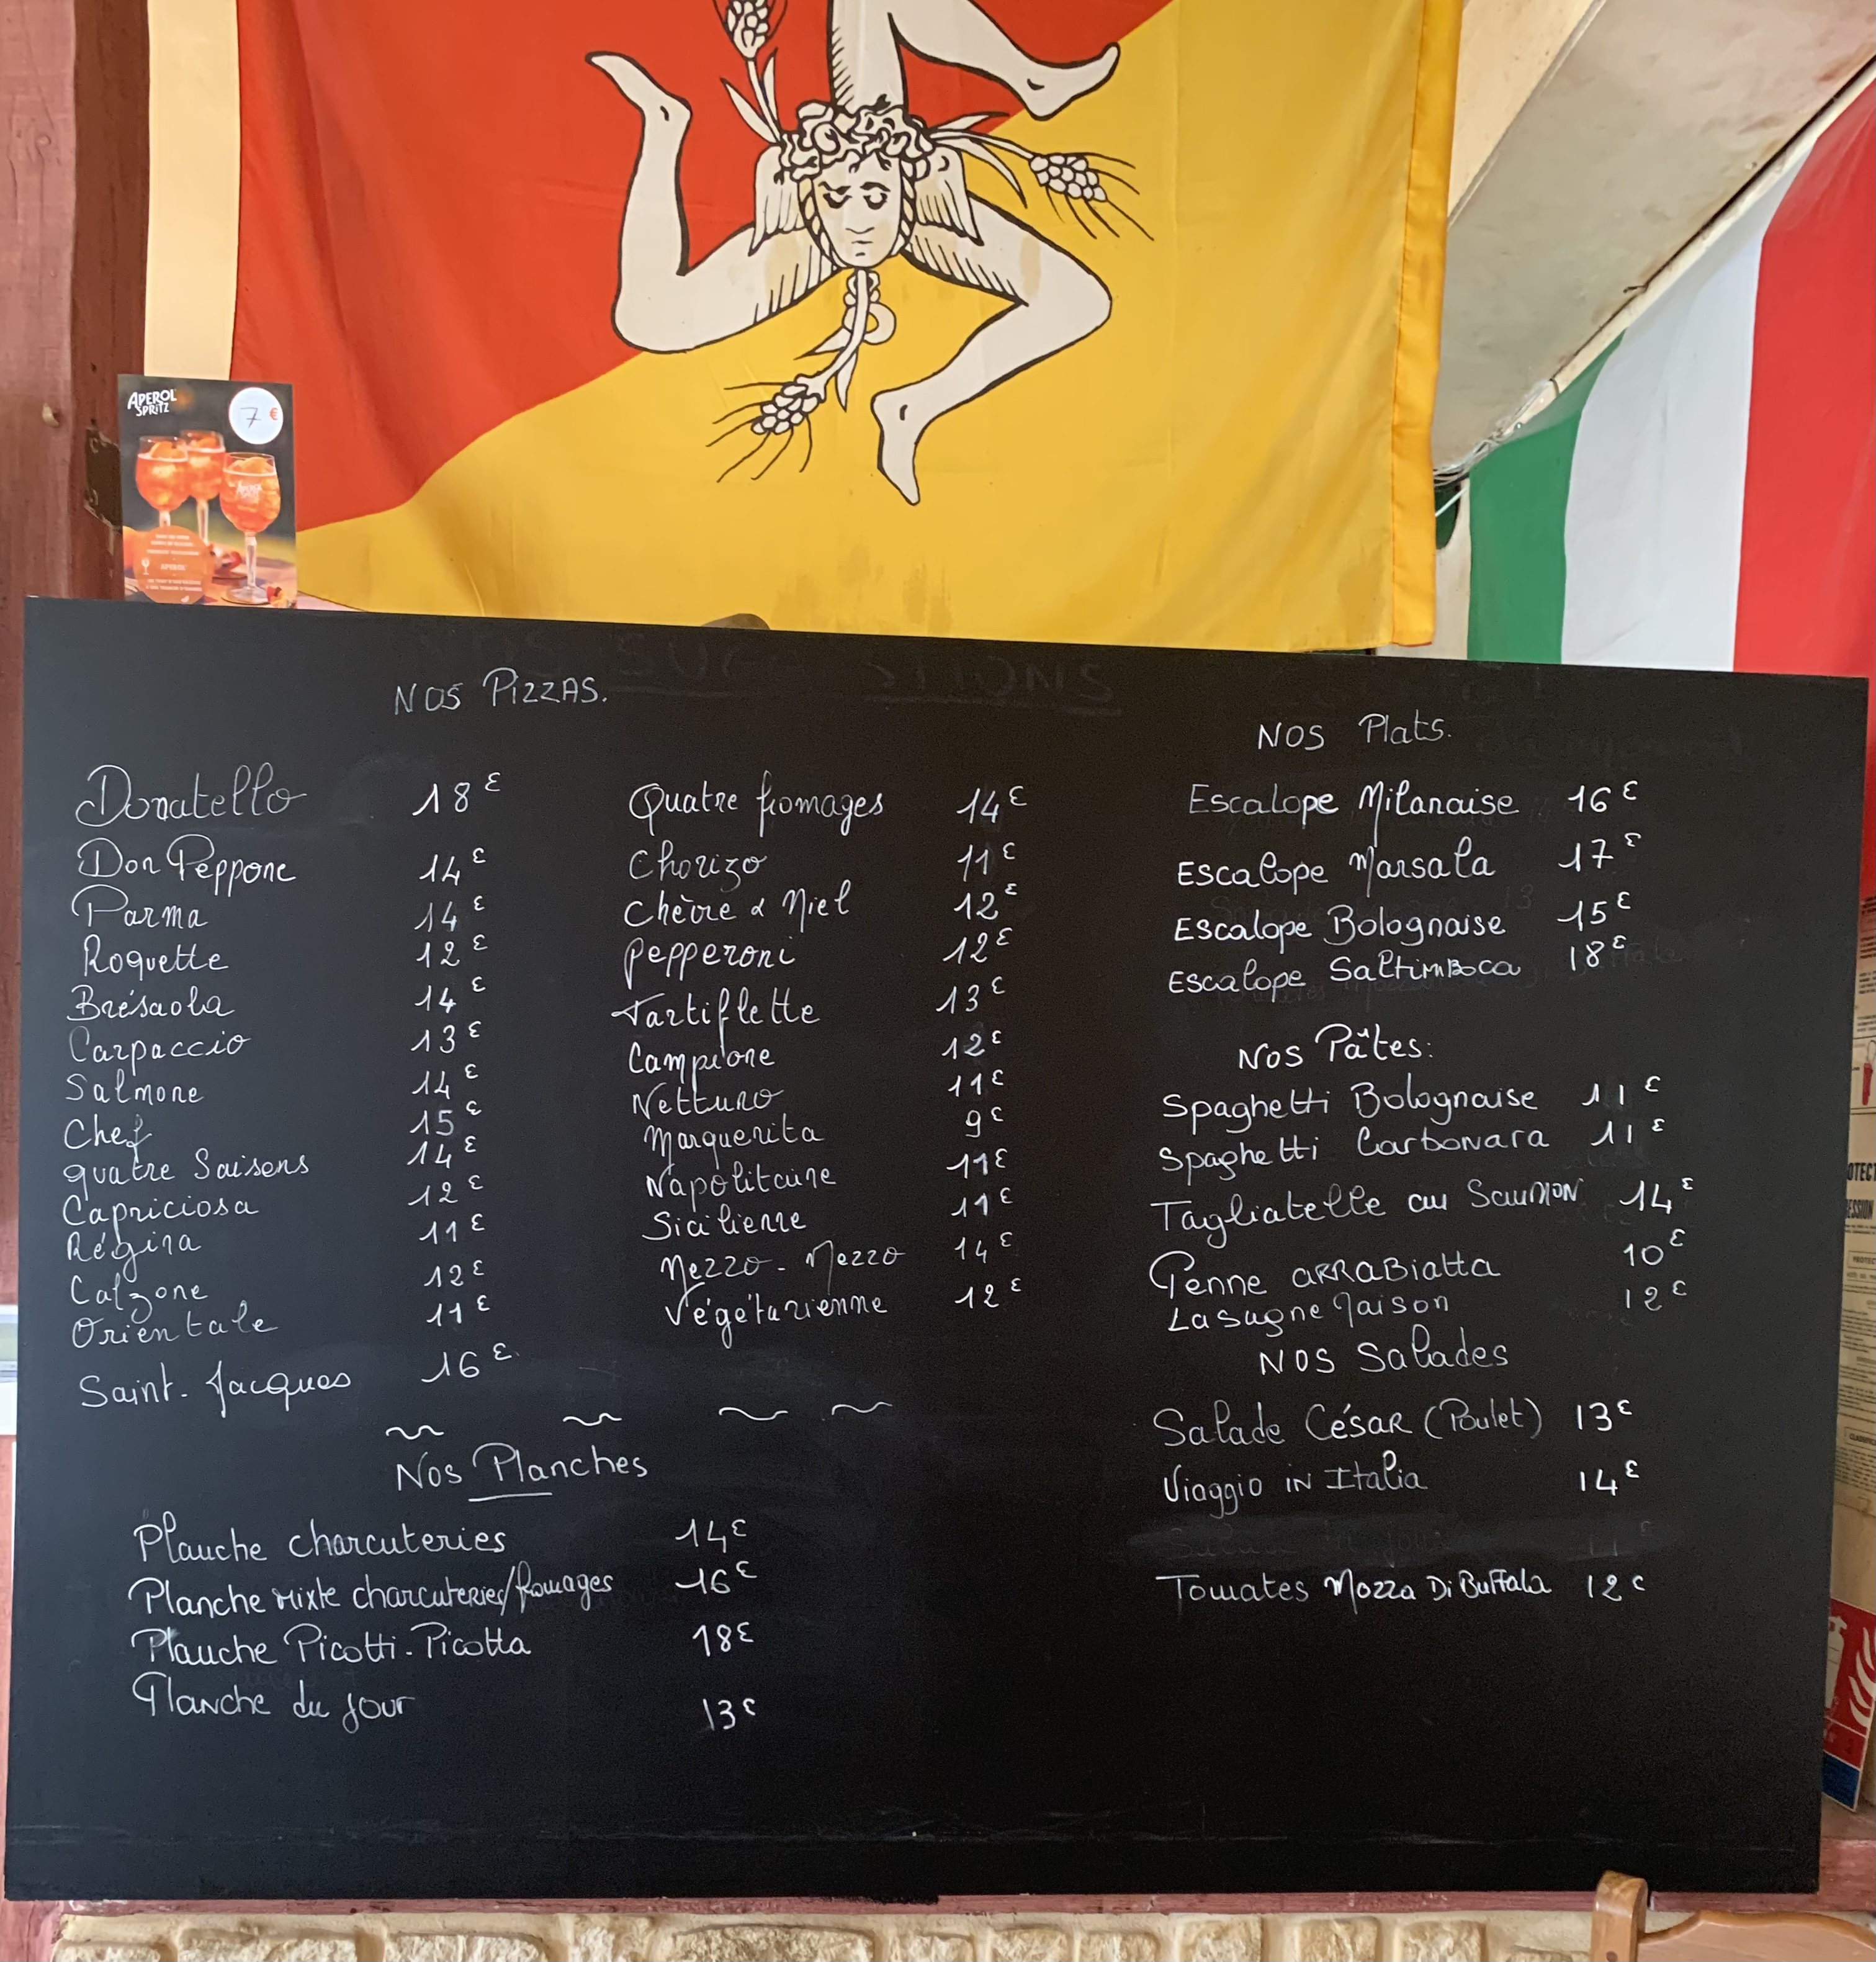 APEROL
SPRITZ
7 €
APEROL
NOS PIZZAS.
Donatello 18€
Don Peppone 14€
Parma 14€
Roquette 12€
Brésaola 14€
Carpaccio 13€
Salmone 14€
Chef 15€
quatre Saisons 14€
Capriciosa 12€
Régina 11€
Calzone 12€
Orientale 11€
Saint-Jacques 16€
Quatre fromages 14€
Chorizo 11€
Chèvre & Miel 12€
Pepperoni 12€
Tartiflette 13€
Campione 12€
Netturo 11€
Marguerita 9€
Napolitaine 11€
Sicilienne 11€
Mezzo-Mezzo 14€
Végétarienne 12€
Nos Planches
Planche charcuteries 14€
Planche mixte charcuteries/fromages 16€
Planche Picotti-Picotta 18€
Planche du jour 13€
NOS Plats.
Escalope Milanaise 16€
Escalope Marsala 17€
Escalope Bolognaise 15€
Escalope SaltimBoca 18€
Nos Pâtes:
Spaghetti Bolognaise 11€
Spaghetti Carbonara 11€
Tagliatelle au Saumon 14€
Penne ARRABiatta 10€
Lasagne Maison 12€
NOS Salades
Salade César (Poulet) 13€
Viaggio in Italia 14€
Tomates Mozza Di Buffala 12€